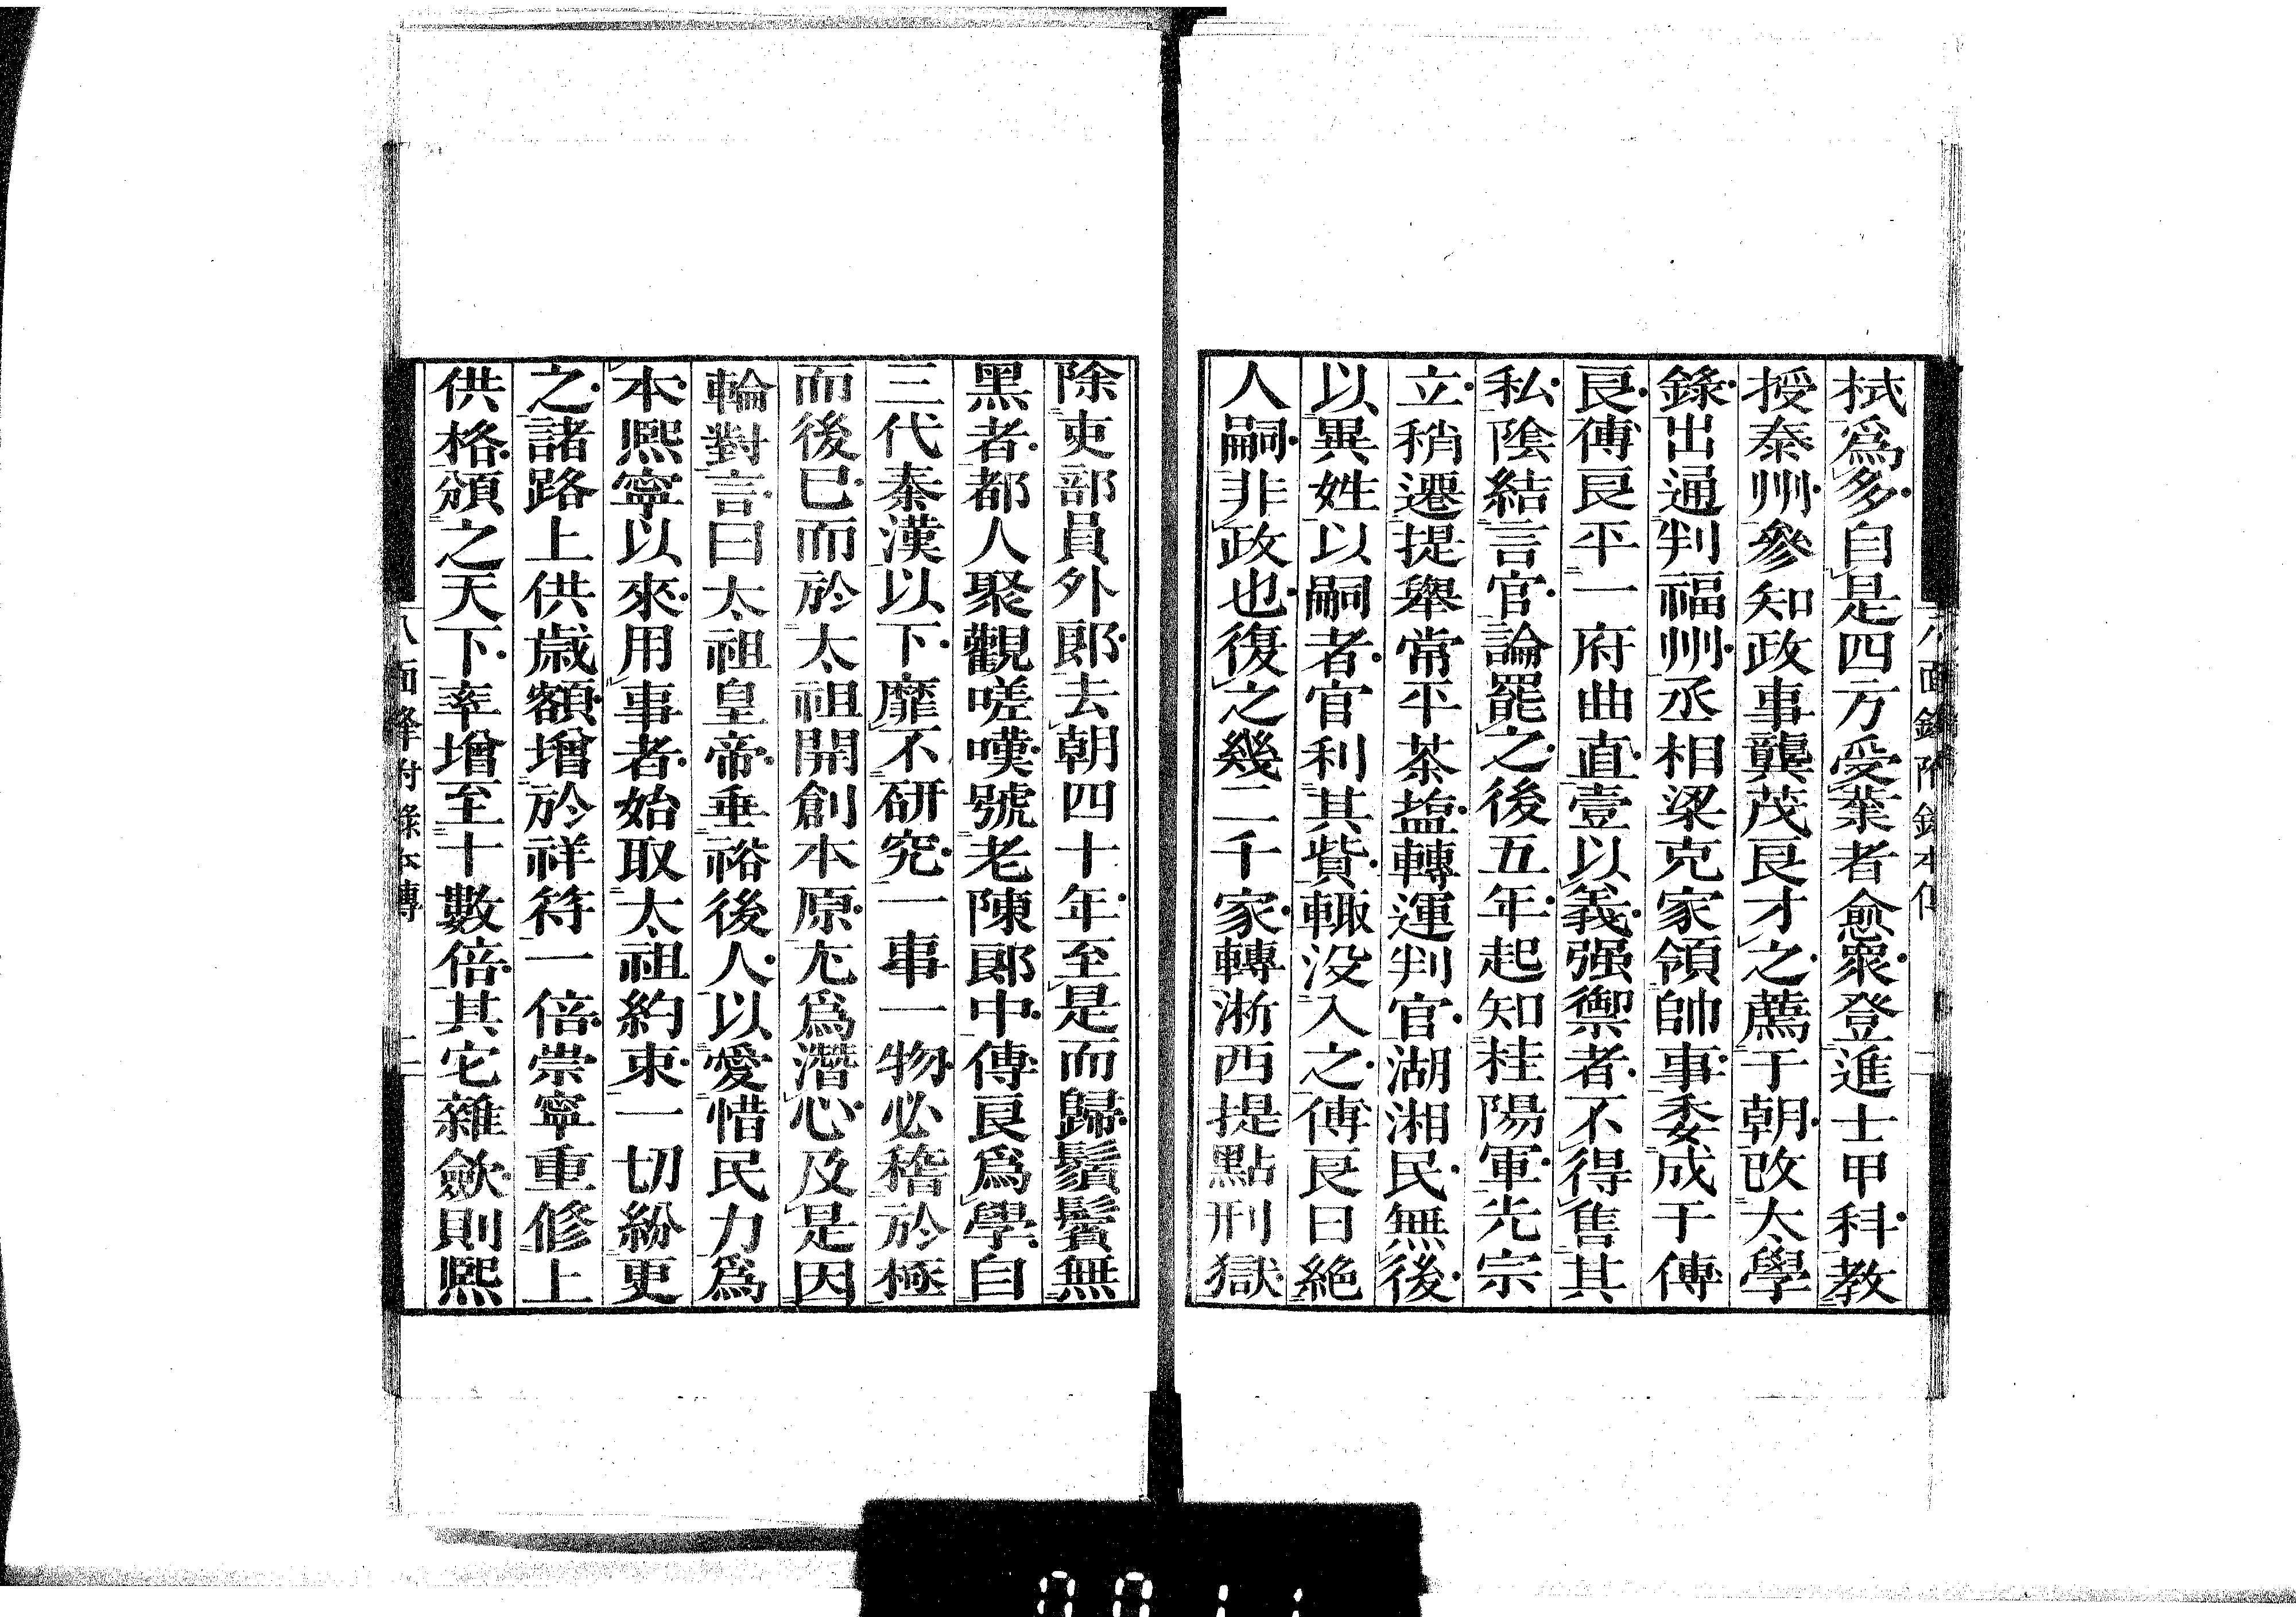 栻為多自是四方受業者愈衆登進士甲科教
授泰州參知政事龔茂良才之薦于朝改太學
錄出通判福州丞相梁克家領帥事委成于傅
良傅良平一府曲直壹以義强禦者不得售其
私陰結言官論罷之後五年起知桂陽軍光宗
立稍遷提舉常平茶鹽轉運判官湖湘民無後
以異姓以嗣者官利其貲輙没入之傅良曰絶
人嗣非政也復之幾二千家轉淅西提點刑獄
除吏部員外郎去朝四十年至是而歸鬚鬢無
黑者都人聚觀嗟嘆號老陳郎中傅良為學自
三代秦漢以下靡不研究一事一物必稽於極
而後已而於太祖開創本原尤為潛心及是因
輪對言曰太祖皇帝垂裕後人以愛惜民力為
本熙寧以來用事者始取太祖約束一切紛更
之諸路上供歳額增於祥符一倍崇寧重修上
供格頒之天下率增至十數倍其它雜歛則熙
八面鋒附錄本傳
二